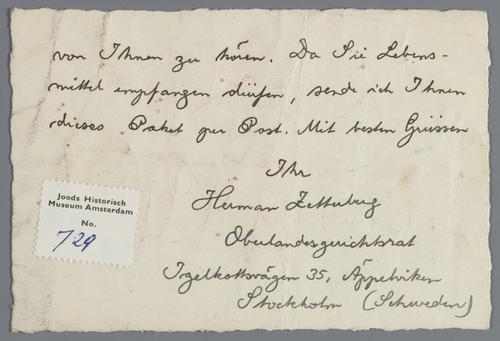 von Ihnen zu hören. Da Sie Lebens-
mittel empfangen dürfen, sende ich Ihnen
dieses Paket per Post. Mit besten Grüssen
Ihr
Herman Zetterberg
Oberlandesgerichtsrat
Igelkottsvägen 35, Äppelviken
Stockholm (Schweden)
Joods Historisch
Museum Amsterdam
No.
729